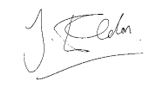 J. Eldon